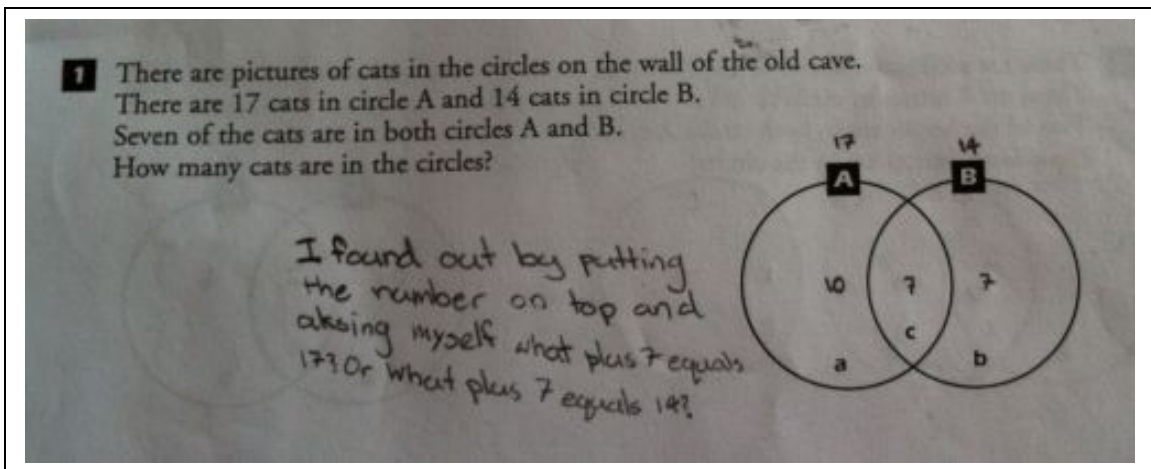 1 There are pictures of cats in the circles on the wall of the old cave.
There are 17 cats in circle A and 14 cats in circle B.
Seven of the cats are in both circles A and B.
How many cats are in the circles?
17 14
A B
I found out by putting
the number on top and
aksing myself what plus 7 equals
17? Or what plus 7 equals 14?
10 7 7
c
a b